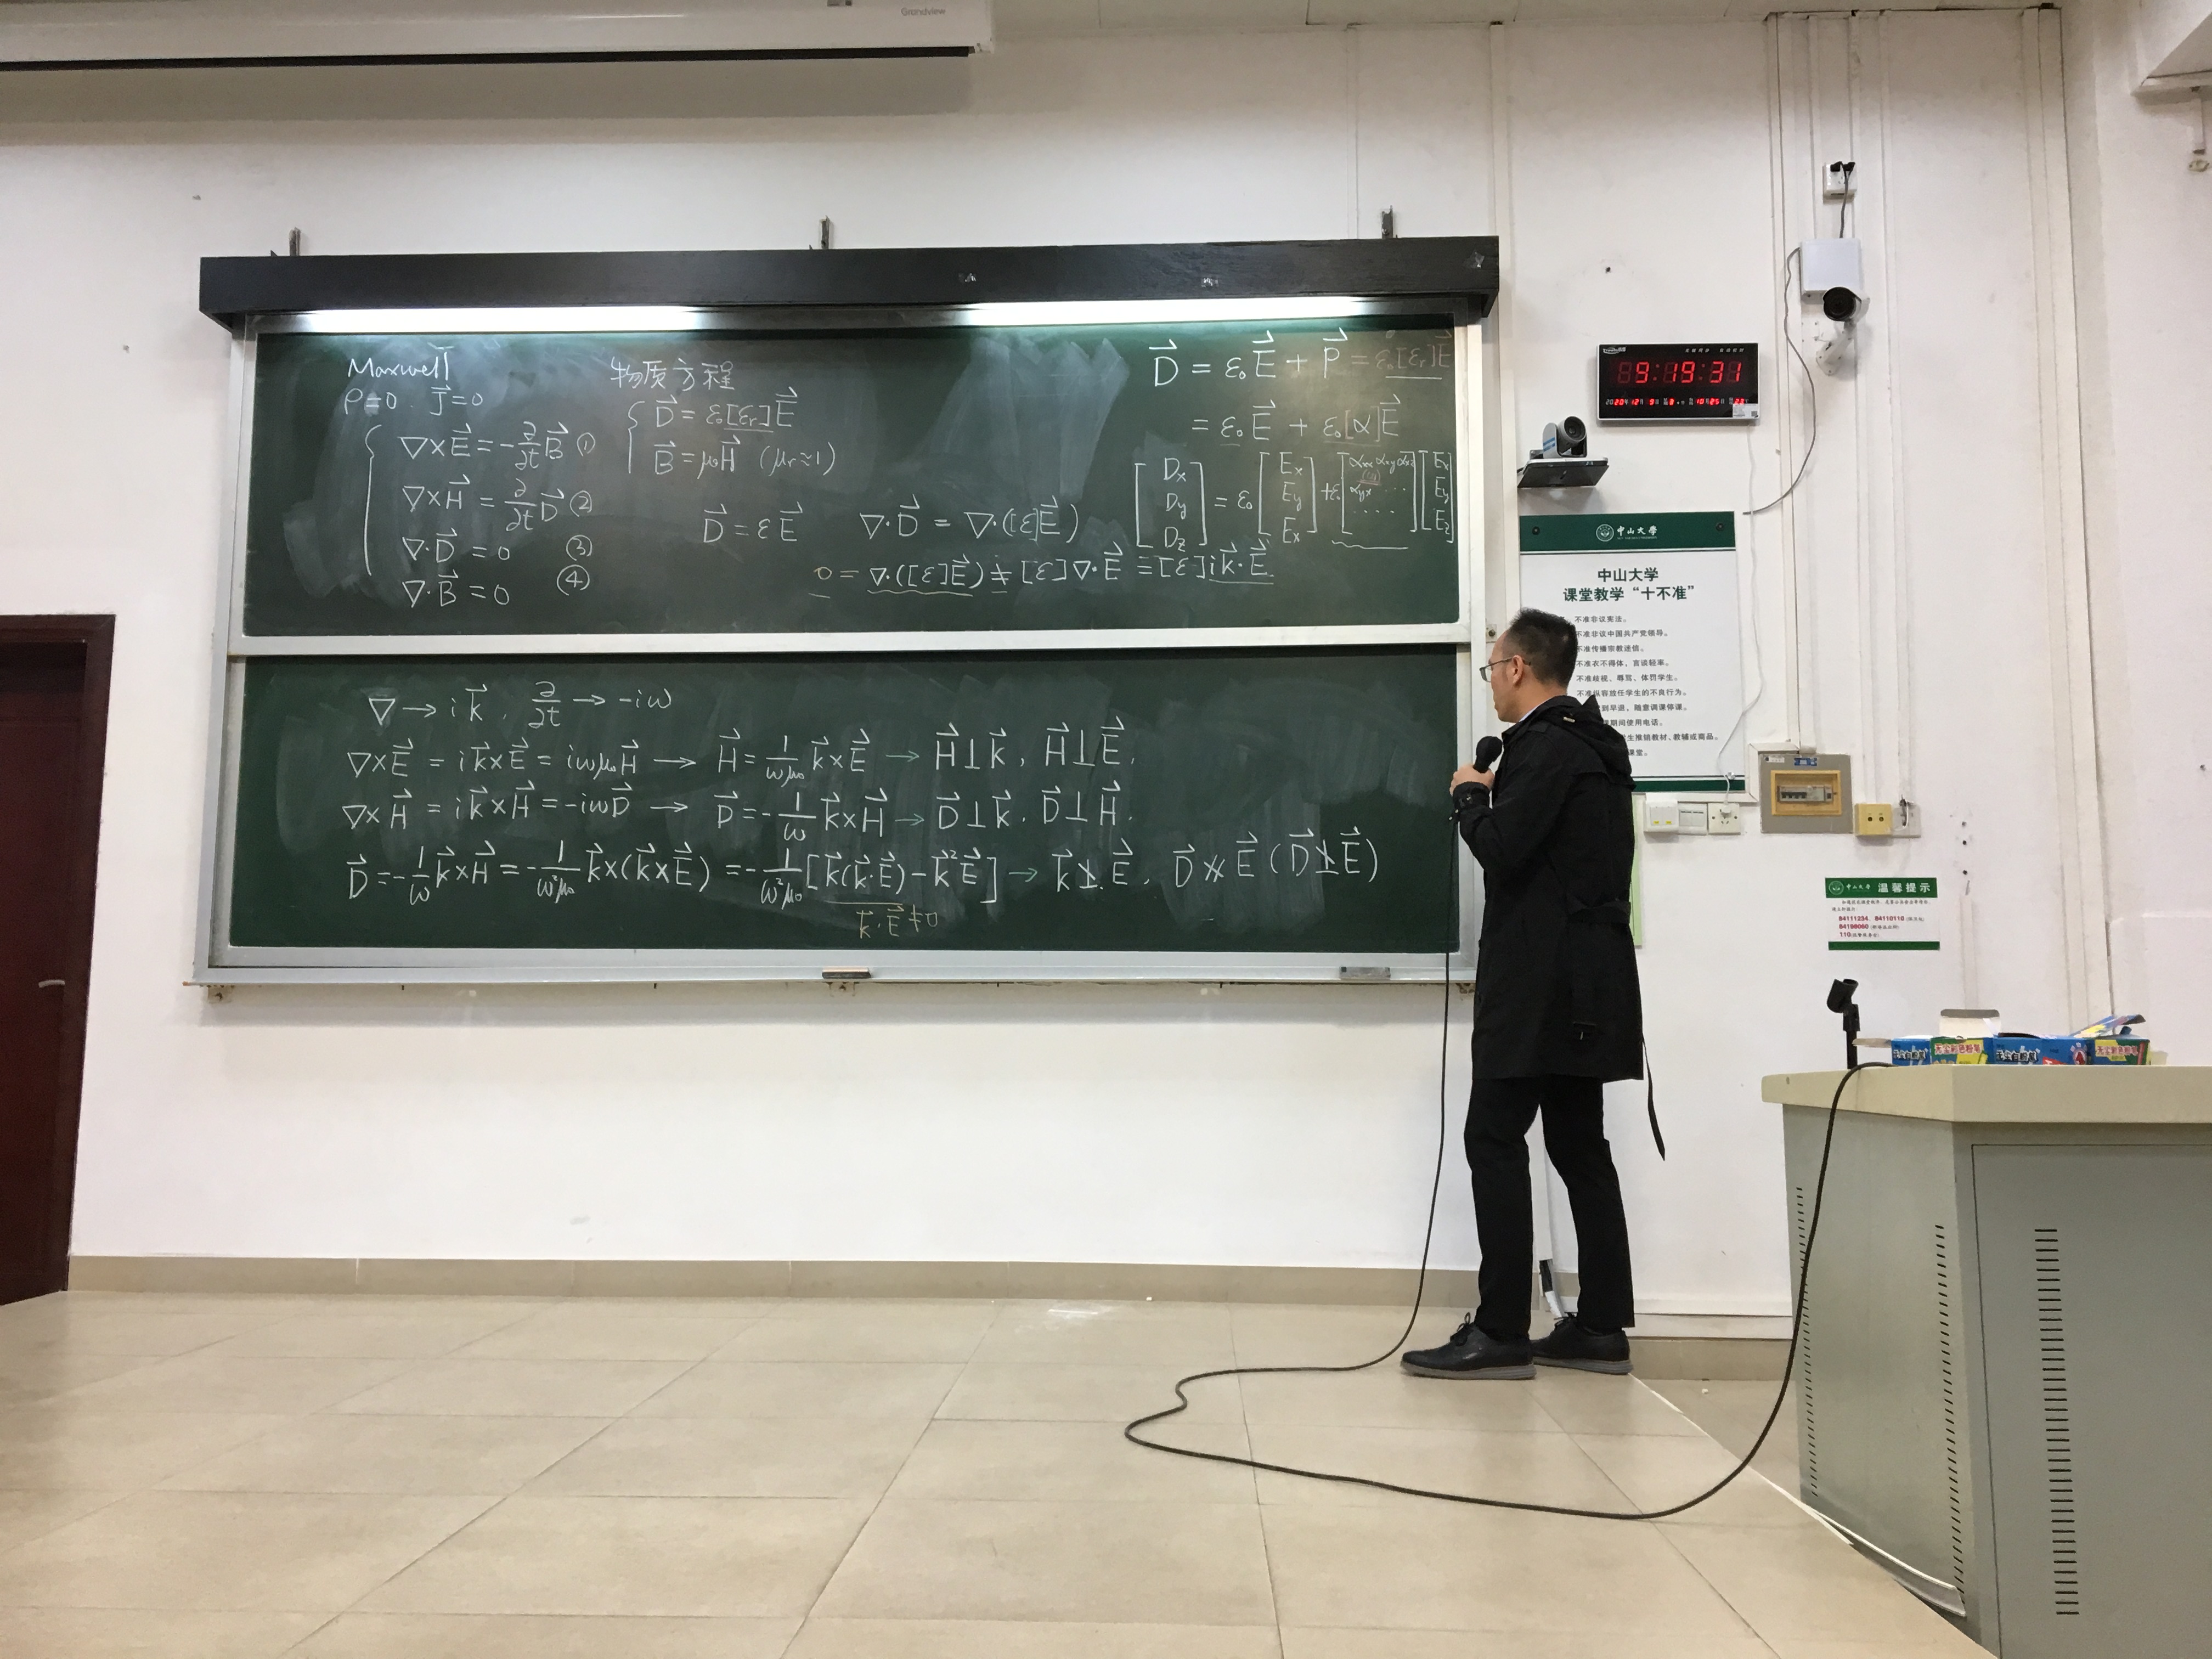 Grandview
Maxwell
ρ=0. J⃗=0
∇×E⃗ = -∂/∂t B⃗ ①
∇×H⃗ = ∂/∂t D⃗ ②
∇·D⃗ = 0 ③
∇·B⃗ = 0 ④
物质方程
D⃗ = ε₀[εr]E⃗
B⃗ = μ₀H⃗ (μr≈1)
D⃗ = εE⃗
∇·D⃗ = ∇·([ε]E⃗)
0 = ∇·([ε]E⃗) ≠ [ε]∇·E⃗ = [ε]ik⃗·E⃗
D⃗ = ε₀E⃗ + P⃗ = ε₀[εr]E⃗
= ε₀E⃗ + ε₀[α]E⃗
[Dx Dy Dz] = ε₀[Ex Ey Ex] + ε₀[αxx αxy αxz αyx ··· ····][Ex Ey Ez]
∇ → ik⃗, ∂/∂t → -iω
∇×E⃗ = ik⃗×E⃗ = iωμ₀H⃗ → H⃗ = 1/ωμ₀ k⃗×E⃗ → H⃗⊥k⃗, H⃗⊥E⃗.
∇×H⃗ = ik⃗×H⃗ = -iωD⃗ → D⃗ = -1/ω k⃗×H⃗ → D⃗⊥k⃗. D⃗⊥H⃗.
D⃗ = -1/ω k⃗×H⃗ = -1/ω²μ₀ k⃗×(k⃗×E⃗) = -1/ω²μ₀ [k⃗(k⃗·E⃗) - k⃗²E⃗] → k⃗⊥̸E⃗, D⃗∦E⃗ (D⃗⊥̸E⃗)
k⃗·E⃗≠0
9:19:31
中山大学
中山大学
课堂教学“十不准”
不准非议宪法。
不准非议中国共产党领导。
不准传播宗教迷信。
不准衣不得体，言谈轻率。
不准歧视、辱骂、体罚学生。
不准纵容放任学生的不良行为。
到早退，随意调课停课。
期间使用电话。
生推销教材、教辅或商品。
课堂。
中山大学 温馨提示
84111234、84110110
84198060
110
无尘彩色粉笔